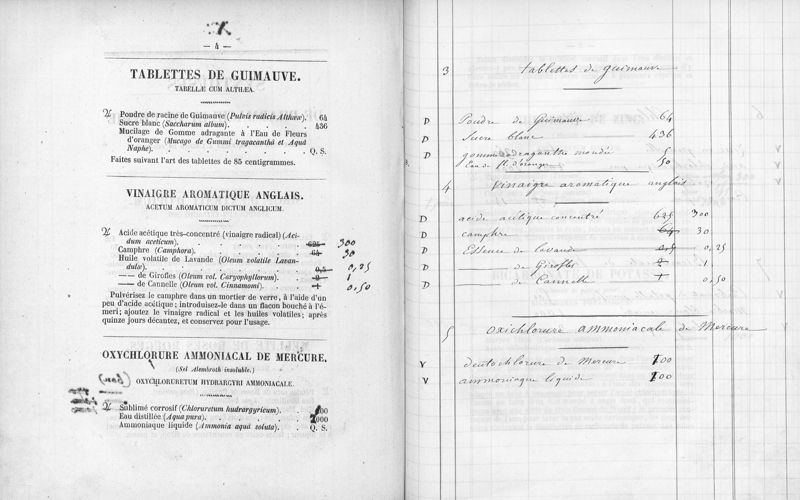 — 4 —
TABLETTES DE GUIMAUVE.
TABELLÆ CUM ALTHÆA.
♃ Poudre de racine de Guimauve (Pulvis radicis Altheæ). 64
Sucre blanc (Saccharum album). . . . . . . 436
Mucilage de Gomme adragante à l'Eau de Fleurs
d'oranger (Mucago de Gummi tragacanthâ et Aquâ
Naphe). . . . . . . . . . . . Q. S.
Faites suivant l'art des tablettes de 85 centigrammes.
VINAIGRE AROMATIQUE ANGLAIS.
ACETUM AROMATICUM DICTUM ANGLICUM.
♃ Acide acétique très-concentré (vinaigre radical) (Aci-
dum aceticum). . . . . . . . . 625 300
Camphre (Camphora). . . . . . . . 64 30
Huile volatile de Lavande (Oleum volatile Lavan-
dulæ). . . . . . . . . . . 0,5 0,25
—— de Girofles (Oleum vol. Caryophyllorum). . . 2 1
—— de Cannelle (Oleum vol. Cinnamomi). . . . 1 0,50
Pulvérisez le camphre dans un mortier de verre, à l'aide d'un
peu d'acide acétique; introduisez-le dans un flacon bouché à l'é-
meri; ajoutez le vinaigre radical et les huiles volatiles; après
quinze jours décantez, et conservez pour l'usage.
OXYCHLORURE AMMONIACAL DE MERCURE.
(Sel Alembroth insoluble.)
OXYCHLORURETUM HYDRARGYRI AMMONIACALE.
(bon)
♃ Sublimé corrosif (Chloruretum hydrargyricum). . 100
Eau distillée (Aqua pura). . . . . . . 2000
Ammoniaque liquide (Ammonia aquâ soluta). . . Q. S.
3 tablettes de guimauve
D Poudre de Guimauve 64
D Sucre blanc 436
D gomme adragante mondée 5
Eau de fl. d'oranger 50
4 Vinaigre aromatique anglais
D acide acétique concentré 625 300
D camphre 64 30
D Essence de lavande 0,5 0,25
D —— de Girofles 2 1
D —— de Cannelle 1 0,50
5 Oxichlorure ammoniacale de Mercure
V deutochlorure de Mercure 100
V ammoniaque liquide 100